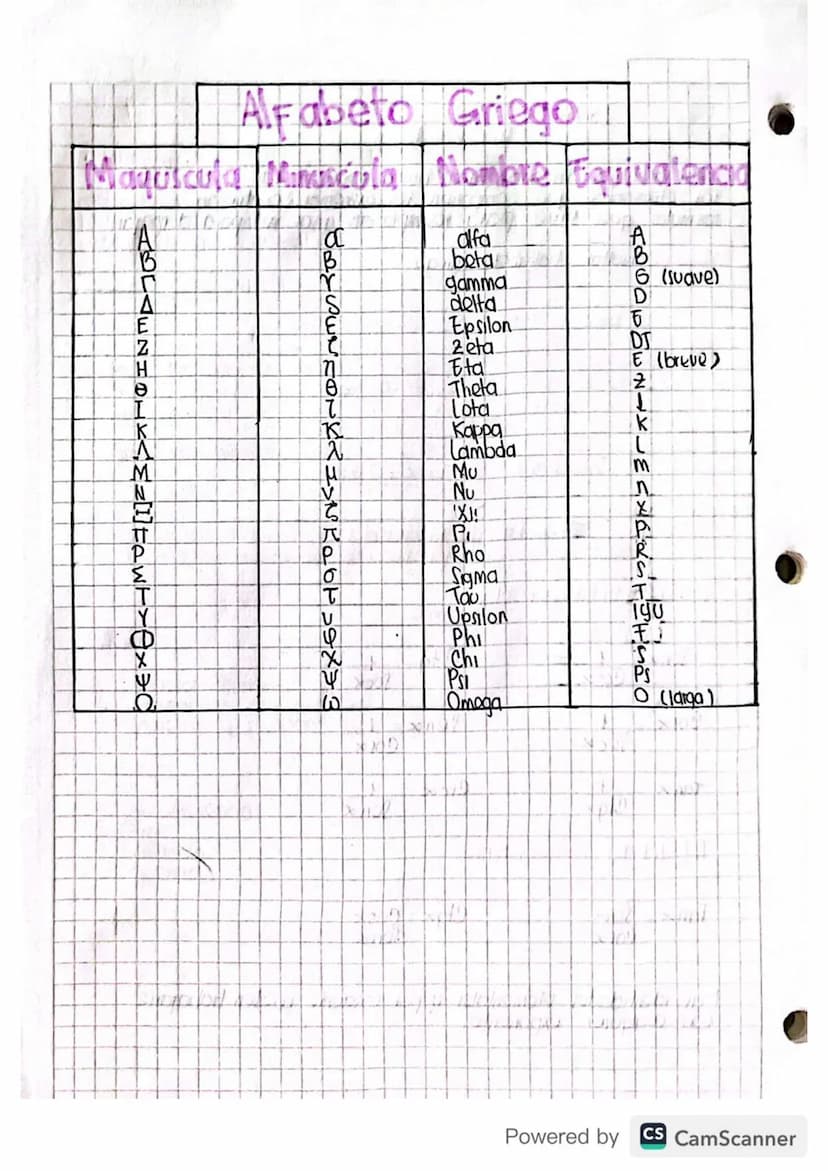 Alfabeto Griego
Mayuscula Minuscula Nombre Equivalencia
A α alfa A
B β beta B
Γ γ gamma G (suave)
Δ δ delta D
E ε Epsilon E
Z ζ zeta DT
H η Eta E (breve)
Θ θ Theta Z
I ι Iota I
K κ Kappa K
Λ λ lambda L
M μ Mu m
N ν Nu n
Ξ ξ Xi X
π π Pi P
P ρ Rho R
Σ σ Sigma S
T τ Tau T
Y υ Upsilon IyU
Φ φ Phi F
X χ Chi S
Ψ ψ Psi Ps
Ω ω Omega O (larga)
Powered by CS CamScanner